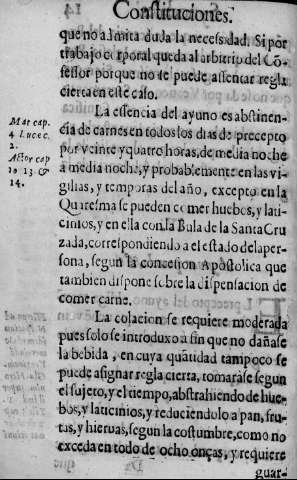 14
Constituciones.
que no admita duda la necessidad. Si por
trabajo corporal queda al arbitrio del Cõ-
fessor porque no se puede assentar regla
cierta en este caso.
La essencia del ayuno es abstinen-
cia de carnes en todos los dias de precepto
por veinte y quatro horas, de media noche
a media noche, y probablemente en las vi-
gilias, y temporas del año, excepto en la
Quaresma se pueden comer huebos, y lati-
cinios, y en ella con la Bula de la Santa Cru
zada, correspondiendo a el estado de la per-
sona, segun la concesion Apostolica que
tambien dispone sobre la dispensacion de
comer carne.
La colacion se requiere moderada
pues solo se introduxo a fin que no dañase
la bebida, en cuya quãtidad tampoco se
puede asignar regla cierta, tomaràse segun
el sujeto, y el tiempo, abstrahiendo de hue-
bos, y laticinios, y reduciendolo a pan, fru-
tas, y hieruas, segun la costumbre, como no
exceda en todo de ocho onças, y requiere
guar-
Mat cap.
4 Luce c.
2.
Actor cap
10 13 &
14.